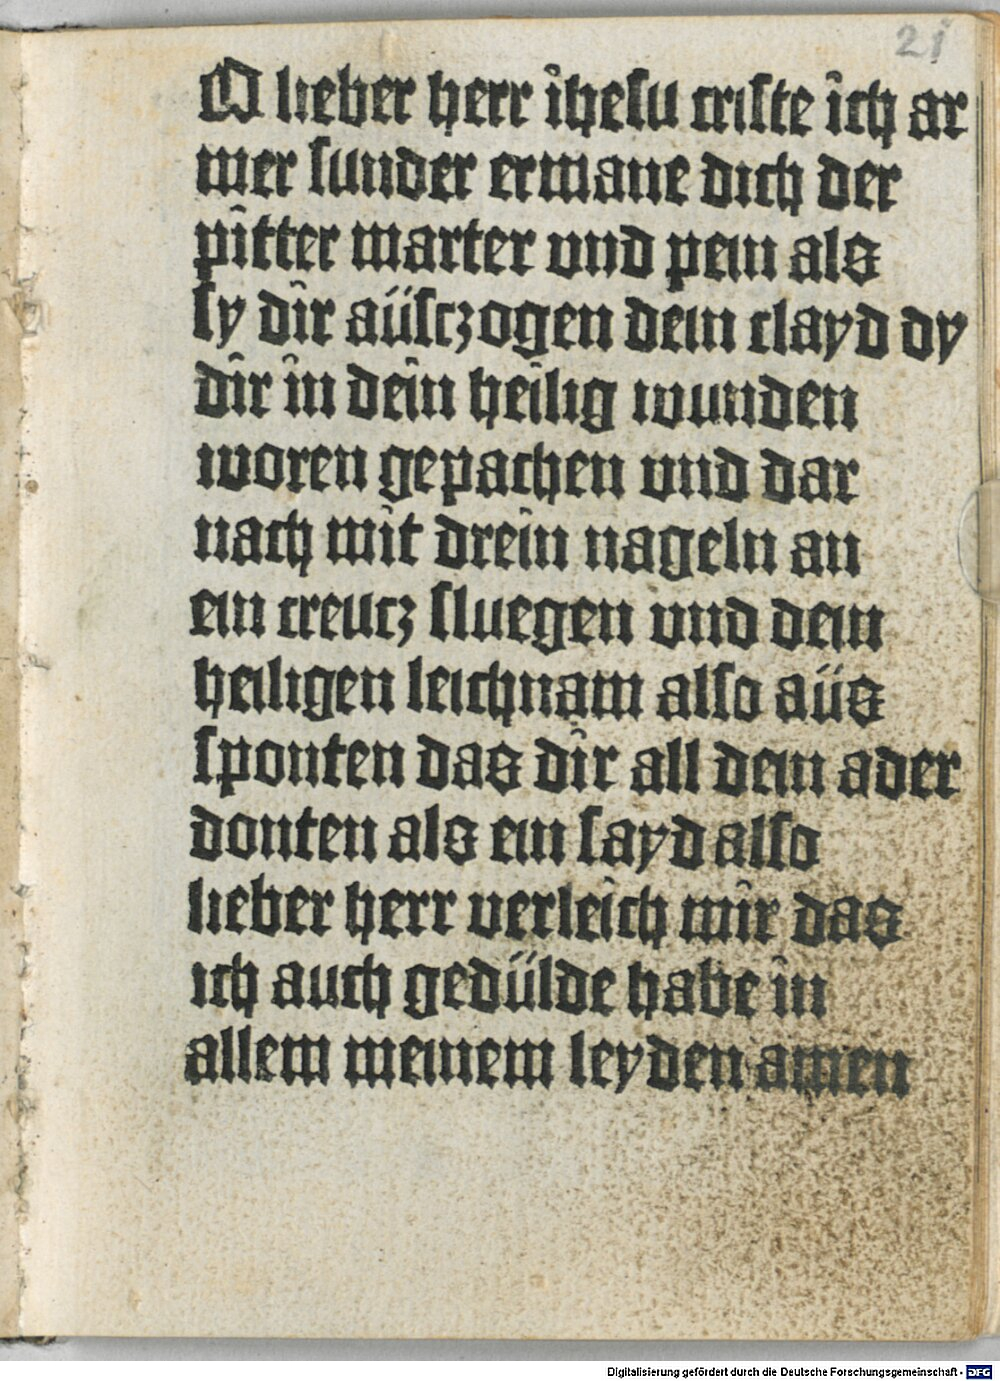 21
O lieber herr ihesu criste ich ar
mer sunder ermane dich der
pitter marter vnd pein als
sy dir aüsczogen dein clayd dy
dir in dein heilig wunden
woren gepachen vnd dar
nach mit drein nageln an
ein creucz sluegen vnd dein
heiligen leichnam also aüs
sponten das dir all dein ader
donten als ein sayd also
lieber herr verleich mir das
ich auch gedülde habe in
allem meinem leyden amen
Digitalisierung gefördert durch die Deutsche Forschungsgemeinschaft - DFG